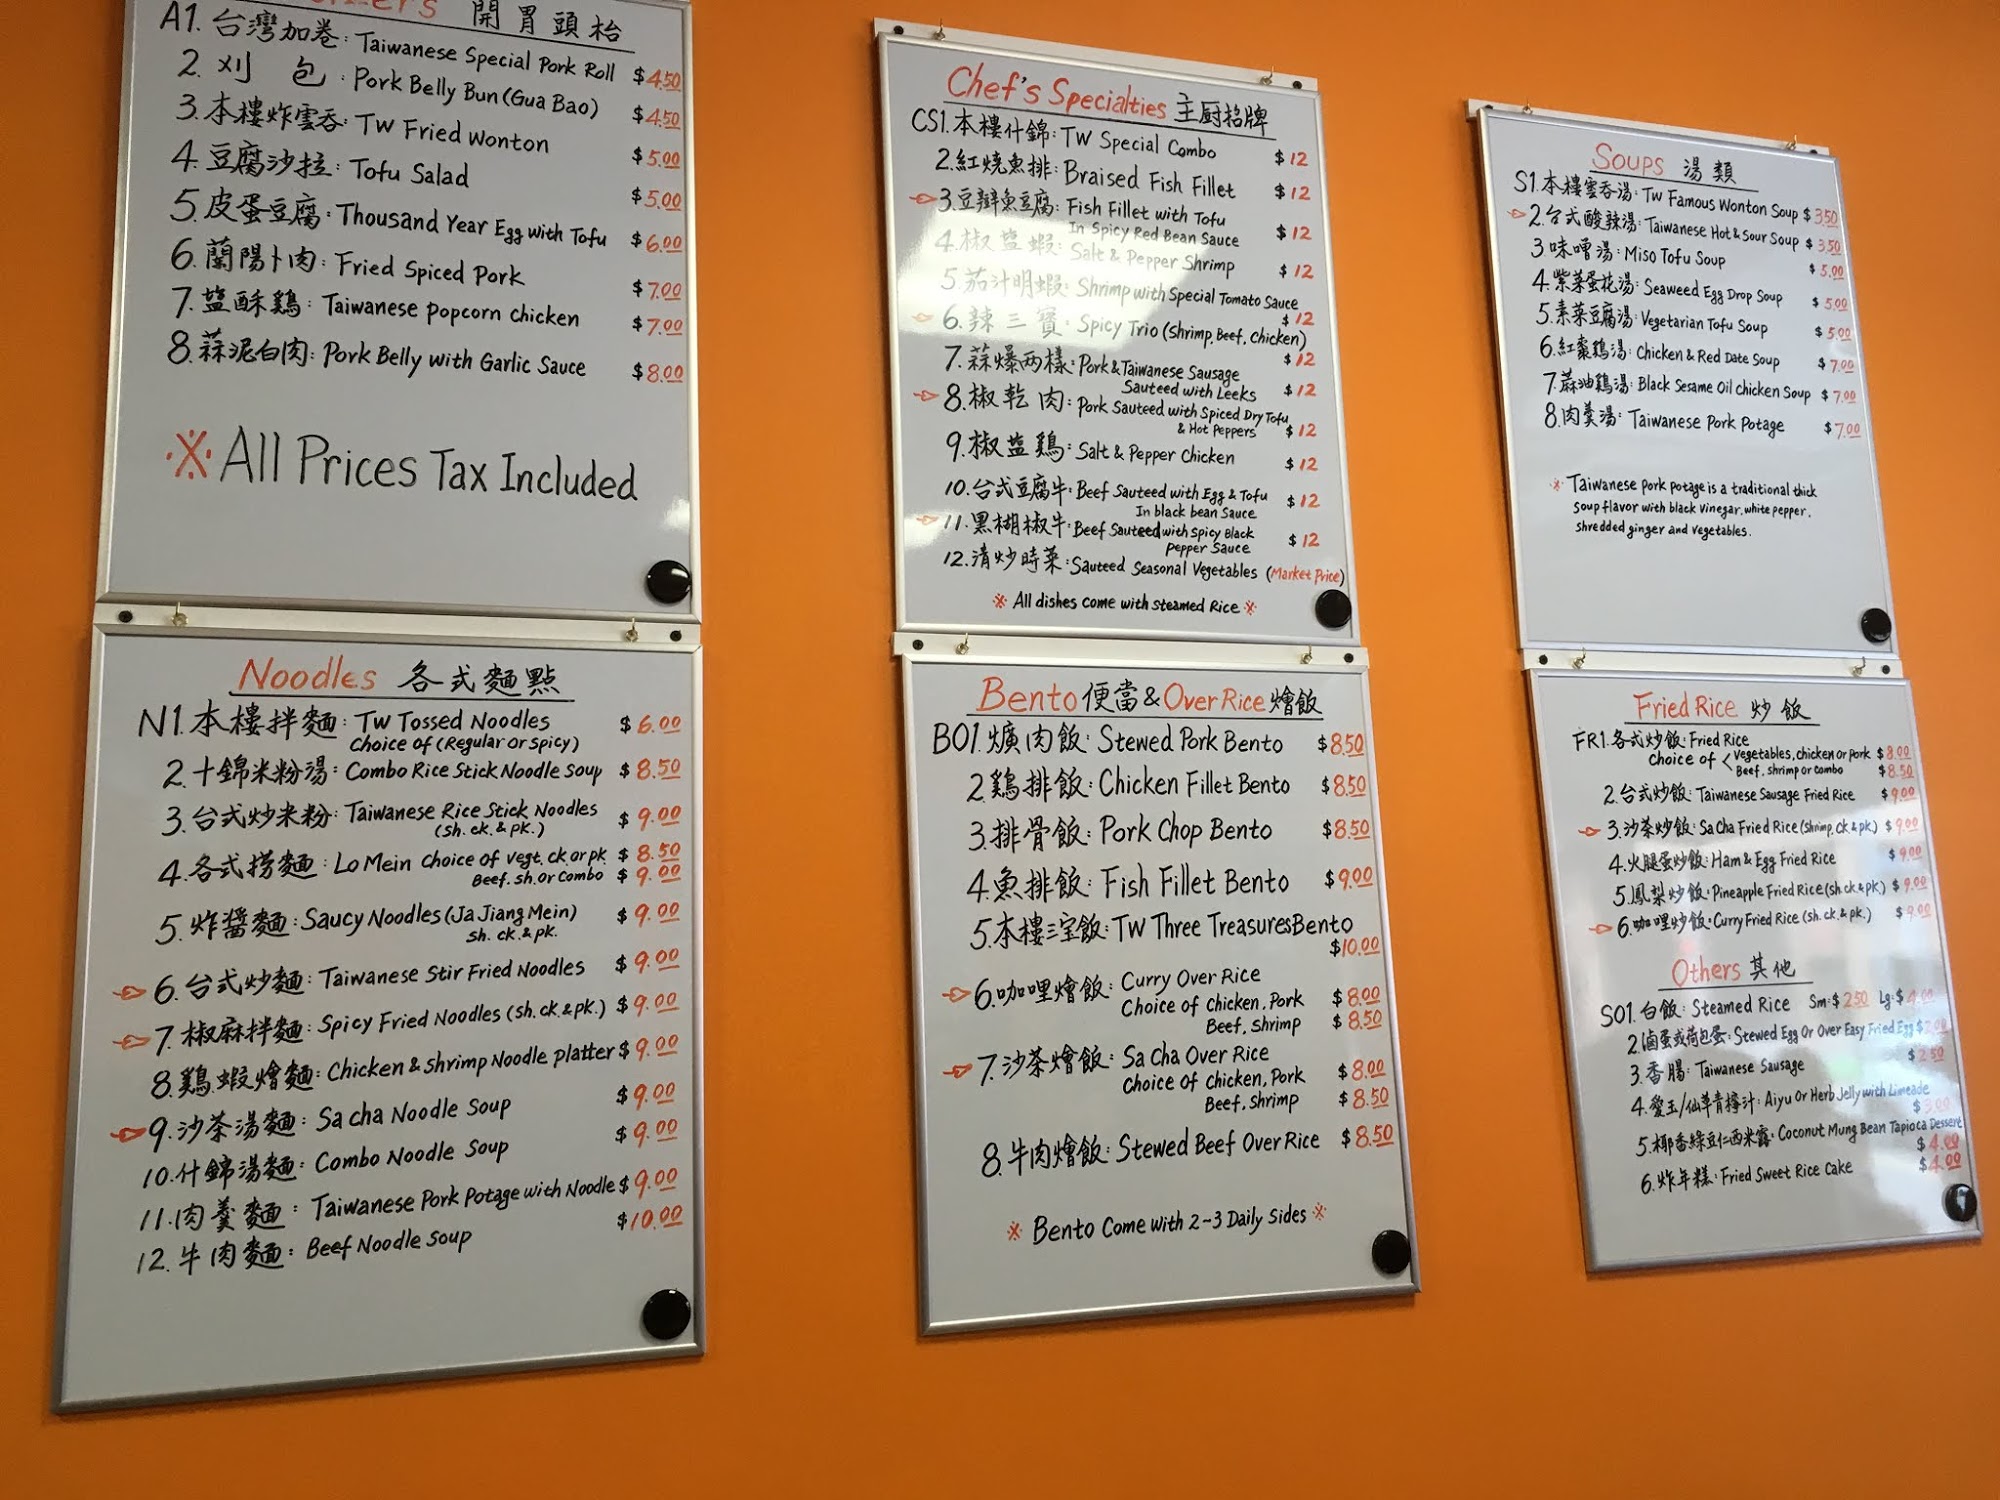 開胃頭枱
A1. 台灣加卷: Taiwanese Special Pork Roll $4.50
2. 刈 包: Pork Belly Bun (Gua Bao) $4.50
3. 本樓炸雲吞: TW Fried Wonton $5.00
4. 豆腐沙拉: Tofu Salad $5.00
5. 皮蛋豆腐: Thousand Year Egg with Tofu $6.00
6. 蘭陽卜肉: Fried Spiced Pork $7.00
7. 盐酥鷄: Taiwanese popcorn chicken $7.00
8. 蒜泥白肉: Pork Belly with Garlic Sauce $8.00
※ All Prices Tax Included
Noodles 各式麵點
N1. 本樓拌麵: TW Tossed Noodles $6.00
Choice of (Regular or Spicy)
2. 十錦米粉湯: Combo Rice Stick Noodle Soup $8.50
3. 台式炒米粉: Taiwanese Rice Stick Noodles $9.00
(sh. ck. & pk.)
4. 各式捞麵: Lo Mein Choice of Vegt. ck. or pk. $8.50
Beef. sh. or Combo $9.00
5. 炸醬麵: Saucy Noodles (Ja Jiang Mein) $9.00
sh. ck. & pk.
6. 台式炒麵: Taiwanese Stir Fried Noodles $9.00
7. 椒麻拌麵: Spicy Fried Noodles (sh. ck & pk.) $9.00
8. 鷄蝦燴麵: Chicken & Shrimp Noodle Platter $9.00
9. 沙茶湯麵: Sa cha Noodle Soup $9.00
10. 什錦湯麵: Combo Noodle Soup $9.00
11. 肉羹麵: Taiwanese Pork Potage with Noodle $9.00
12. 牛肉麵: Beef Noodle Soup $10.00
Chef's Specialties 主厨招牌
CS1. 本樓什錦: TW Special Combo $12
2. 紅燒魚排: Braised Fish Fillet $12
3. 豆瓣魚豆腐: Fish Fillet with Tofu
In Spicy Red Bean Sauce $12
4. 椒盐蝦: Salt & Pepper Shrimp $12
5. 茄汁明蝦: Shrimp with Special Tomato Sauce
$12
6. 辣三寶: Spicy Trio (Shrimp, Beef, Chicken)
$12
7. 蒜爆两樣: Pork & Taiwanese Sausage
Sauteed with Leeks $12
8. 椒乾肉: Pork Sauteed with Spiced Dry Tofu
& Hot Peppers $12
9. 椒盐鷄: Salt & Pepper Chicken $12
10. 台式豆腐牛: Beef Sauteed with Egg & Tofu
In black bean Sauce $12
11. 黑楜椒牛: Beef Sauteed with Spicy Black
Pepper Sauce $12
12. 清炒時菜: Sauteed Seasonal Vegetables (Market Price)
※ All dishes come with steamed Rice ※
Bento 便當 & Over Rice 燴飯
BO1. 爌肉飯: Stewed Pork Bento $8.50
2. 鷄排飯: Chicken Fillet Bento $8.50
3. 排骨飯: Pork Chop Bento $8.50
4. 魚排飯: Fish Fillet Bento $9.00
5. 本樓三宝飯: TW Three Treasures Bento
$10.00
6. 咖哩燴飯: Curry Over Rice
Choice of Chicken, Pork $8.00
Beef, Shrimp $8.50
7. 沙茶燴飯: Sa Cha Over Rice
Choice of Chicken, Pork $8.00
Beef, Shrimp $8.50
8. 牛肉燴飯: Stewed Beef Over Rice $8.50
※ Bento Come with 2~3 Daily Sides ※
Soups 湯類
S1. 本樓雲吞湯: TW Famous Wonton Soup $3.50
2. 台式酸辣湯: Taiwanese Hot & Sour Soup $3.50
3. 味噌湯: Miso Tofu Soup $5.00
4. 紫菜蛋花湯: Seaweed Egg Drop Soup $5.00
5. 素菜豆腐湯: Vegetarian Tofu Soup $5.00
6. 紅棗鷄湯: Chicken & Red Date Soup $7.00
7. 蔴油鷄湯: Black Sesame Oil Chicken Soup $7.00
8. 肉羹湯: Taiwanese Pork Potage $7.00
※ Taiwanese pork potage is a traditional thick
soup flavor with black vinegar, white pepper,
shredded ginger and vegetables.
Fried Rice 炒飯
FR1. 各式炒飯: Fried Rice
Choice of < Vegetables, chicken or pork $8.00
Beef, shrimp or combo $8.50
2. 台式炒飯: Taiwanese Sausage Fried Rice $9.00
3. 沙茶炒飯: Sa Cha Fried Rice (Shrimp, ck & pk.) $9.00
4. 火腿蛋炒飯: Ham & Egg Fried Rice $9.00
5. 鳳梨炒飯: Pineapple Fried Rice (sh. ck & pk.) $9.00
6. 咖哩炒飯: Curry Fried Rice (sh. ck. & pk.) $9.00
Others 其他
SO1. 白飯: Steamed Rice Sm: $2.50 Lg: $4.00
2. 滷蛋或荷包蛋: Stewed Egg Or Over Easy Fried Egg $2.00
3. 香腸: Taiwanese Sausage $2.50
4. 愛玉/仙草青檸汁: Aiyu Or Herb Jelly with Limeade
$3.00
5. 椰香綠豆仁西米露: Coconut Mung Bean Tapioca Dessert
$4.00
6. 炸年糕: Fried Sweet Rice Cake $4.00